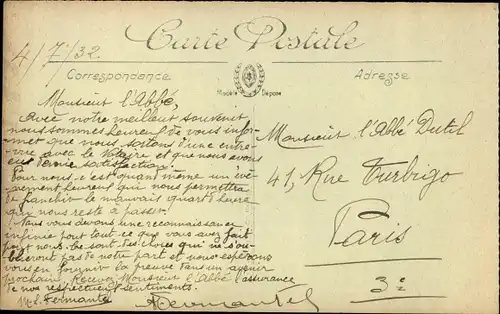 Carte Postale
4/7/32
Correspondance
Modèle Déposé
Adresse
Monsieur l'Abbé,
Avec notre meilleur souvenir
nous sommes heureux de vous infor-
mer que nous sortons d'une entre-
avec le Notaire et que nous avons
eu satisfaction.
Pour nous, c'est quant même un évè-
nement heureux qui nous permettra
de franchir le mauvais quart d'heure
qui nous reste à passer.
Nous vous devons une reconnaissance
infinie pour tout ce que vous avez fait
pour nous. Ce sont des choses qui ne s'ou-
blieront pas de notre part et nous espérons
vous en fournir la preuve dans un avenir
prochain. Recevez Monsieur l'Abbé l'assurance
de nos respectueux sentiments.
Monsieur l'Abbé Dutil
41, Rue Turbigo
Paris
3e